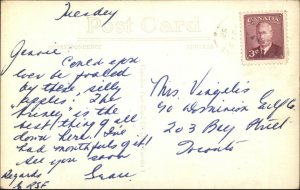 Tuesday
Post Card
CORRESPONDENCE
ADDRESS
CANADA
3
Jennie:
Could you
ever be fooled
by these, silly
"apples". The
honey is the
best thing of all
down here. I've
had mouthfuls of it!
See you soon
Regards
to RSF
Mrs.
90 Dominion
203 Bay Street
Toronto